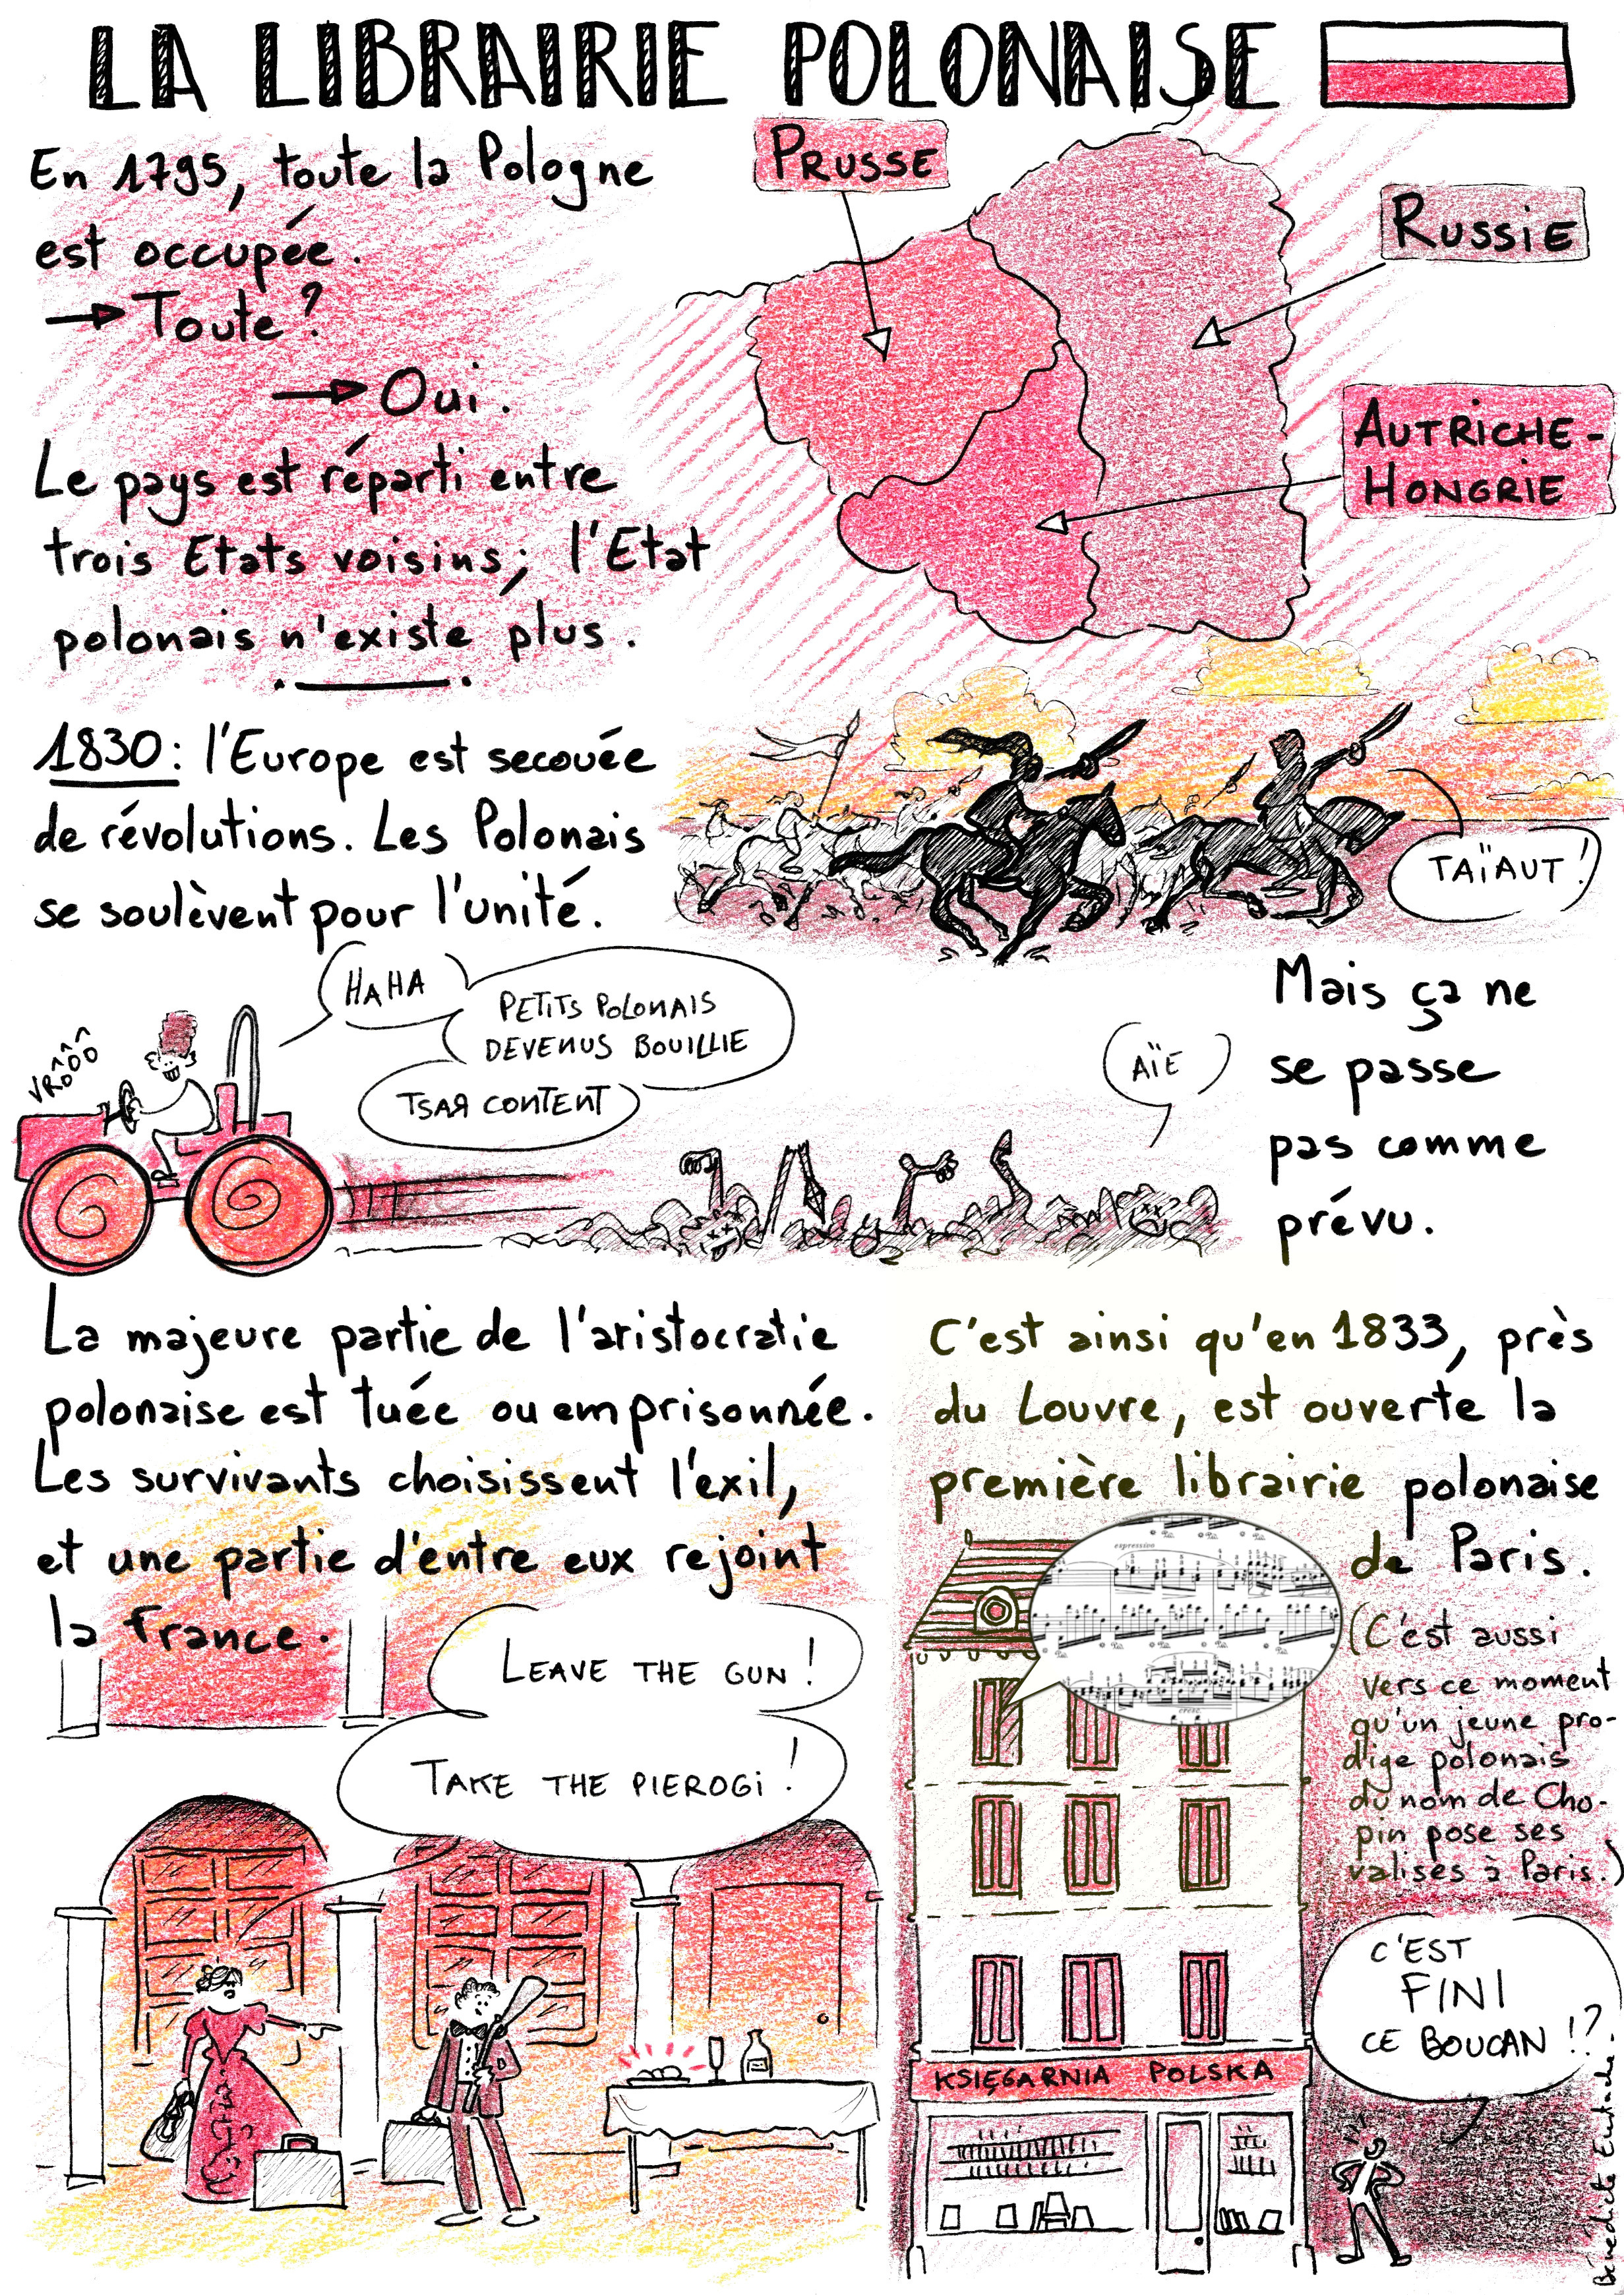 LA LIBRAIRIE POLONAISE
En 1795, toute la Pologne
est occupée.
→ Toute ?
→ Oui.
Le pays est réparti entre
trois Etats voisins; l'Etat
polonais n'existe plus.
PRUSSE
RUSSIE
AUTRICHE-
HONGRIE
1830 : l'Europe est secouée
de révolutions. Les Polonais
se soulèvent pour l'unité.
TAÏAUT !
VRÔÔÔ
HAHA
PETITS POLONAIS
DEVENUS BOUILLIE
TSAЯ CONTENT
AÏE
Mais ça ne
se passe
pas comme
prévu.
La majeure partie de l'aristocratie
polonaise est tuée ou emprisonnée.
Les survivants choisissent l'exil,
et une partie d'entre eux rejoint
la France.
LEAVE THE GUN !
TAKE THE PIEROGI !
C'est ainsi qu'en 1833, près
du Louvre, est ouverte la
première librairie polonaise
de Paris.
expressivo
cresc.
(C'est aussi
vers ce moment
qu'un jeune pro-
dige polonais
du nom de Cho-
pin pose ses
valises à Paris.)
C'EST
FINI
CE BOUCAN !?
KSIĘGARNIA POLSKA
Bénédicte Eustache.